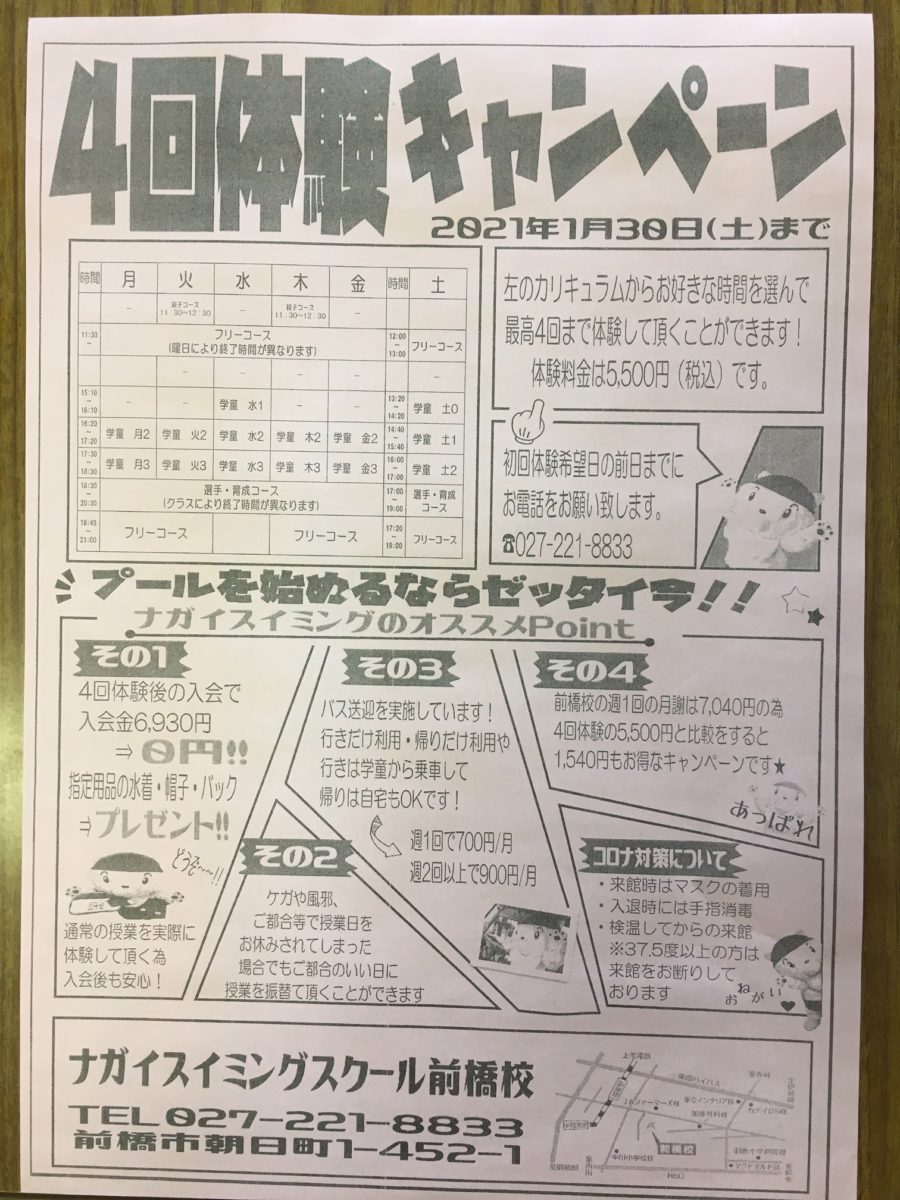 4回体験キャンペーン
2021年1月30日(土)まで
時間 月 火 水 木 金 時間 土
－ 親子コース － 親子コース － －
11:30～12:30 11:30～12:30
11:30～ フリーコース 12:00～13:00 フリーコース
(曜日により終了時間が異なります)
－ － － － － －
15:10～16:10 － － 学童 水1 － － 13:20～14:20 学童 土0
16:20～17:20 学童 月2 学童 火2 学童 水2 学童 木2 学童 金2 14:40～15:40 学童 土1
17:30～18:30 学童 月3 学童 火3 学童 水3 学童 木3 学童 金3 16:00～17:00 学童 土2
18:30～20:30 選手・育成コース 17:00～19:00 選手・育成コース
(クラスにより終了時間が異なります)
18:45～21:00 フリーコース － フリーコース 17:20～19:00 フリーコース
左のカリキュラムからお好きな時間を選んで
最高4回まで体験して頂くことができます！
体験料金は5,500円（税込）です。
初回体験希望日の前日までに
お電話をお願い致します。
☎027-221-8833
プールを始めるならゼッタイ今！！
ナガイスイミングのオススメPoint
その1
4回体験後の入会で
入会金6,930円
⇒ 0円!!
指定用品の水着・帽子・バック
⇒プレゼント!!
どうぞ～～!!
通常の授業を実際に
体験して頂く為
入会後も安心！
その2
ケガや風邪、
ご都合等で授業日を
お休みされてしまった
場合でもご都合のいい日に
授業を振替て頂くことができます
その3
バス送迎を実施しています！
行きだけ利用・帰りだけ利用や
行きは学童から乗車して
帰りは自宅もOKです！
週1回で700円/月
週2回以上で900円/月
その4
前橋校の週1回の月謝は7,040円の為
4回体験の5,500円と比較をすると
1,540円もお得なキャンペーンです★
あっぱれ
コロナ対策について
・来館時はマスクの着用
・入退時には手指消毒
・検温してからの来館
※37.5度以上の方は
来館をお断りして
おります
おねがい♥
ナガイスイミングスクール前橋校
TEL 027-221-8833
前橋市朝日町1-452-1
上毛電鉄
東部バイパス
前橋校
R50